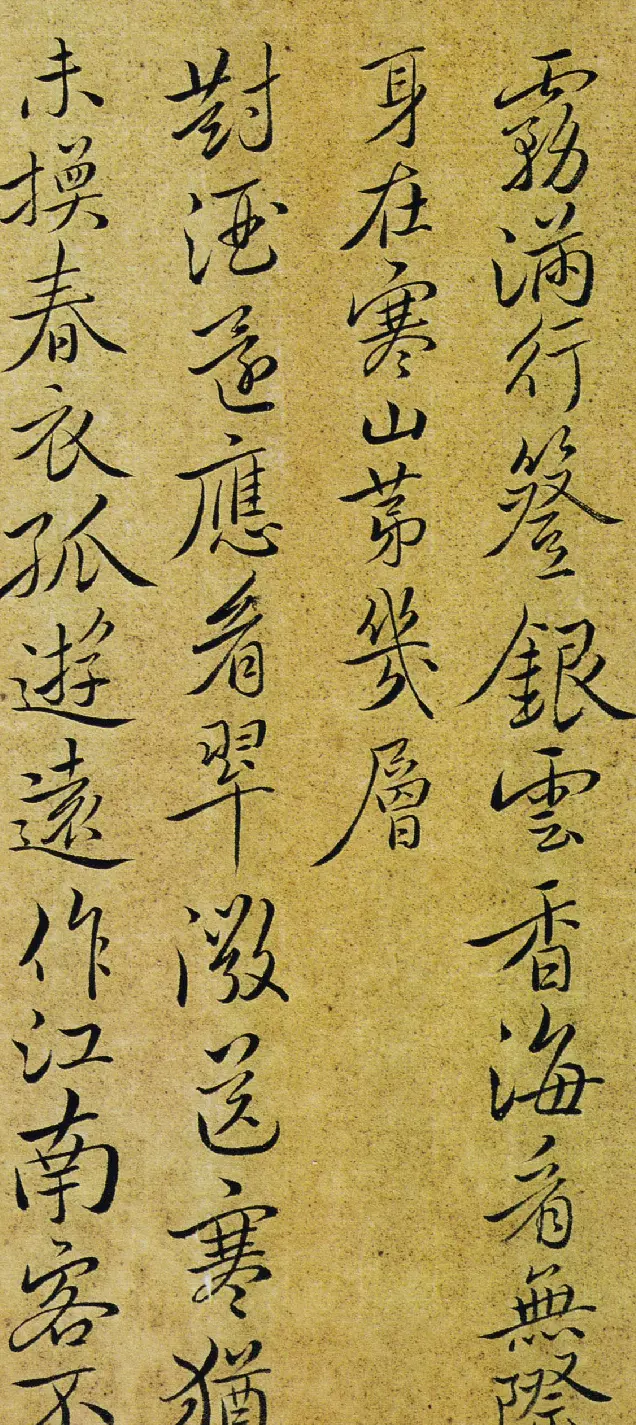 霧滿行簦銀雲香海看無際
身在寒山第幾層
對酒還應看翠微送寒猶
未換春衣孤遊遠作江南客不